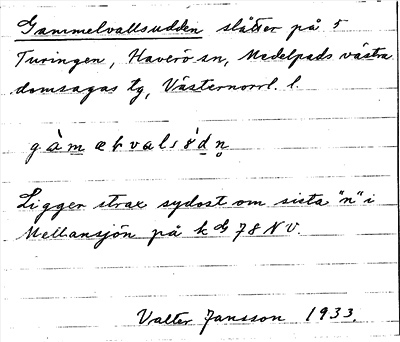 Gammelvallsudden slåtter på 5
Turingen, Haverö sn, Medelpads västra
domsagas tg, Västernorrl. l.
Ligger strax sydost om sista "n" i
Mellansjön på k G 78 NV.
Valter Jansson 1933.